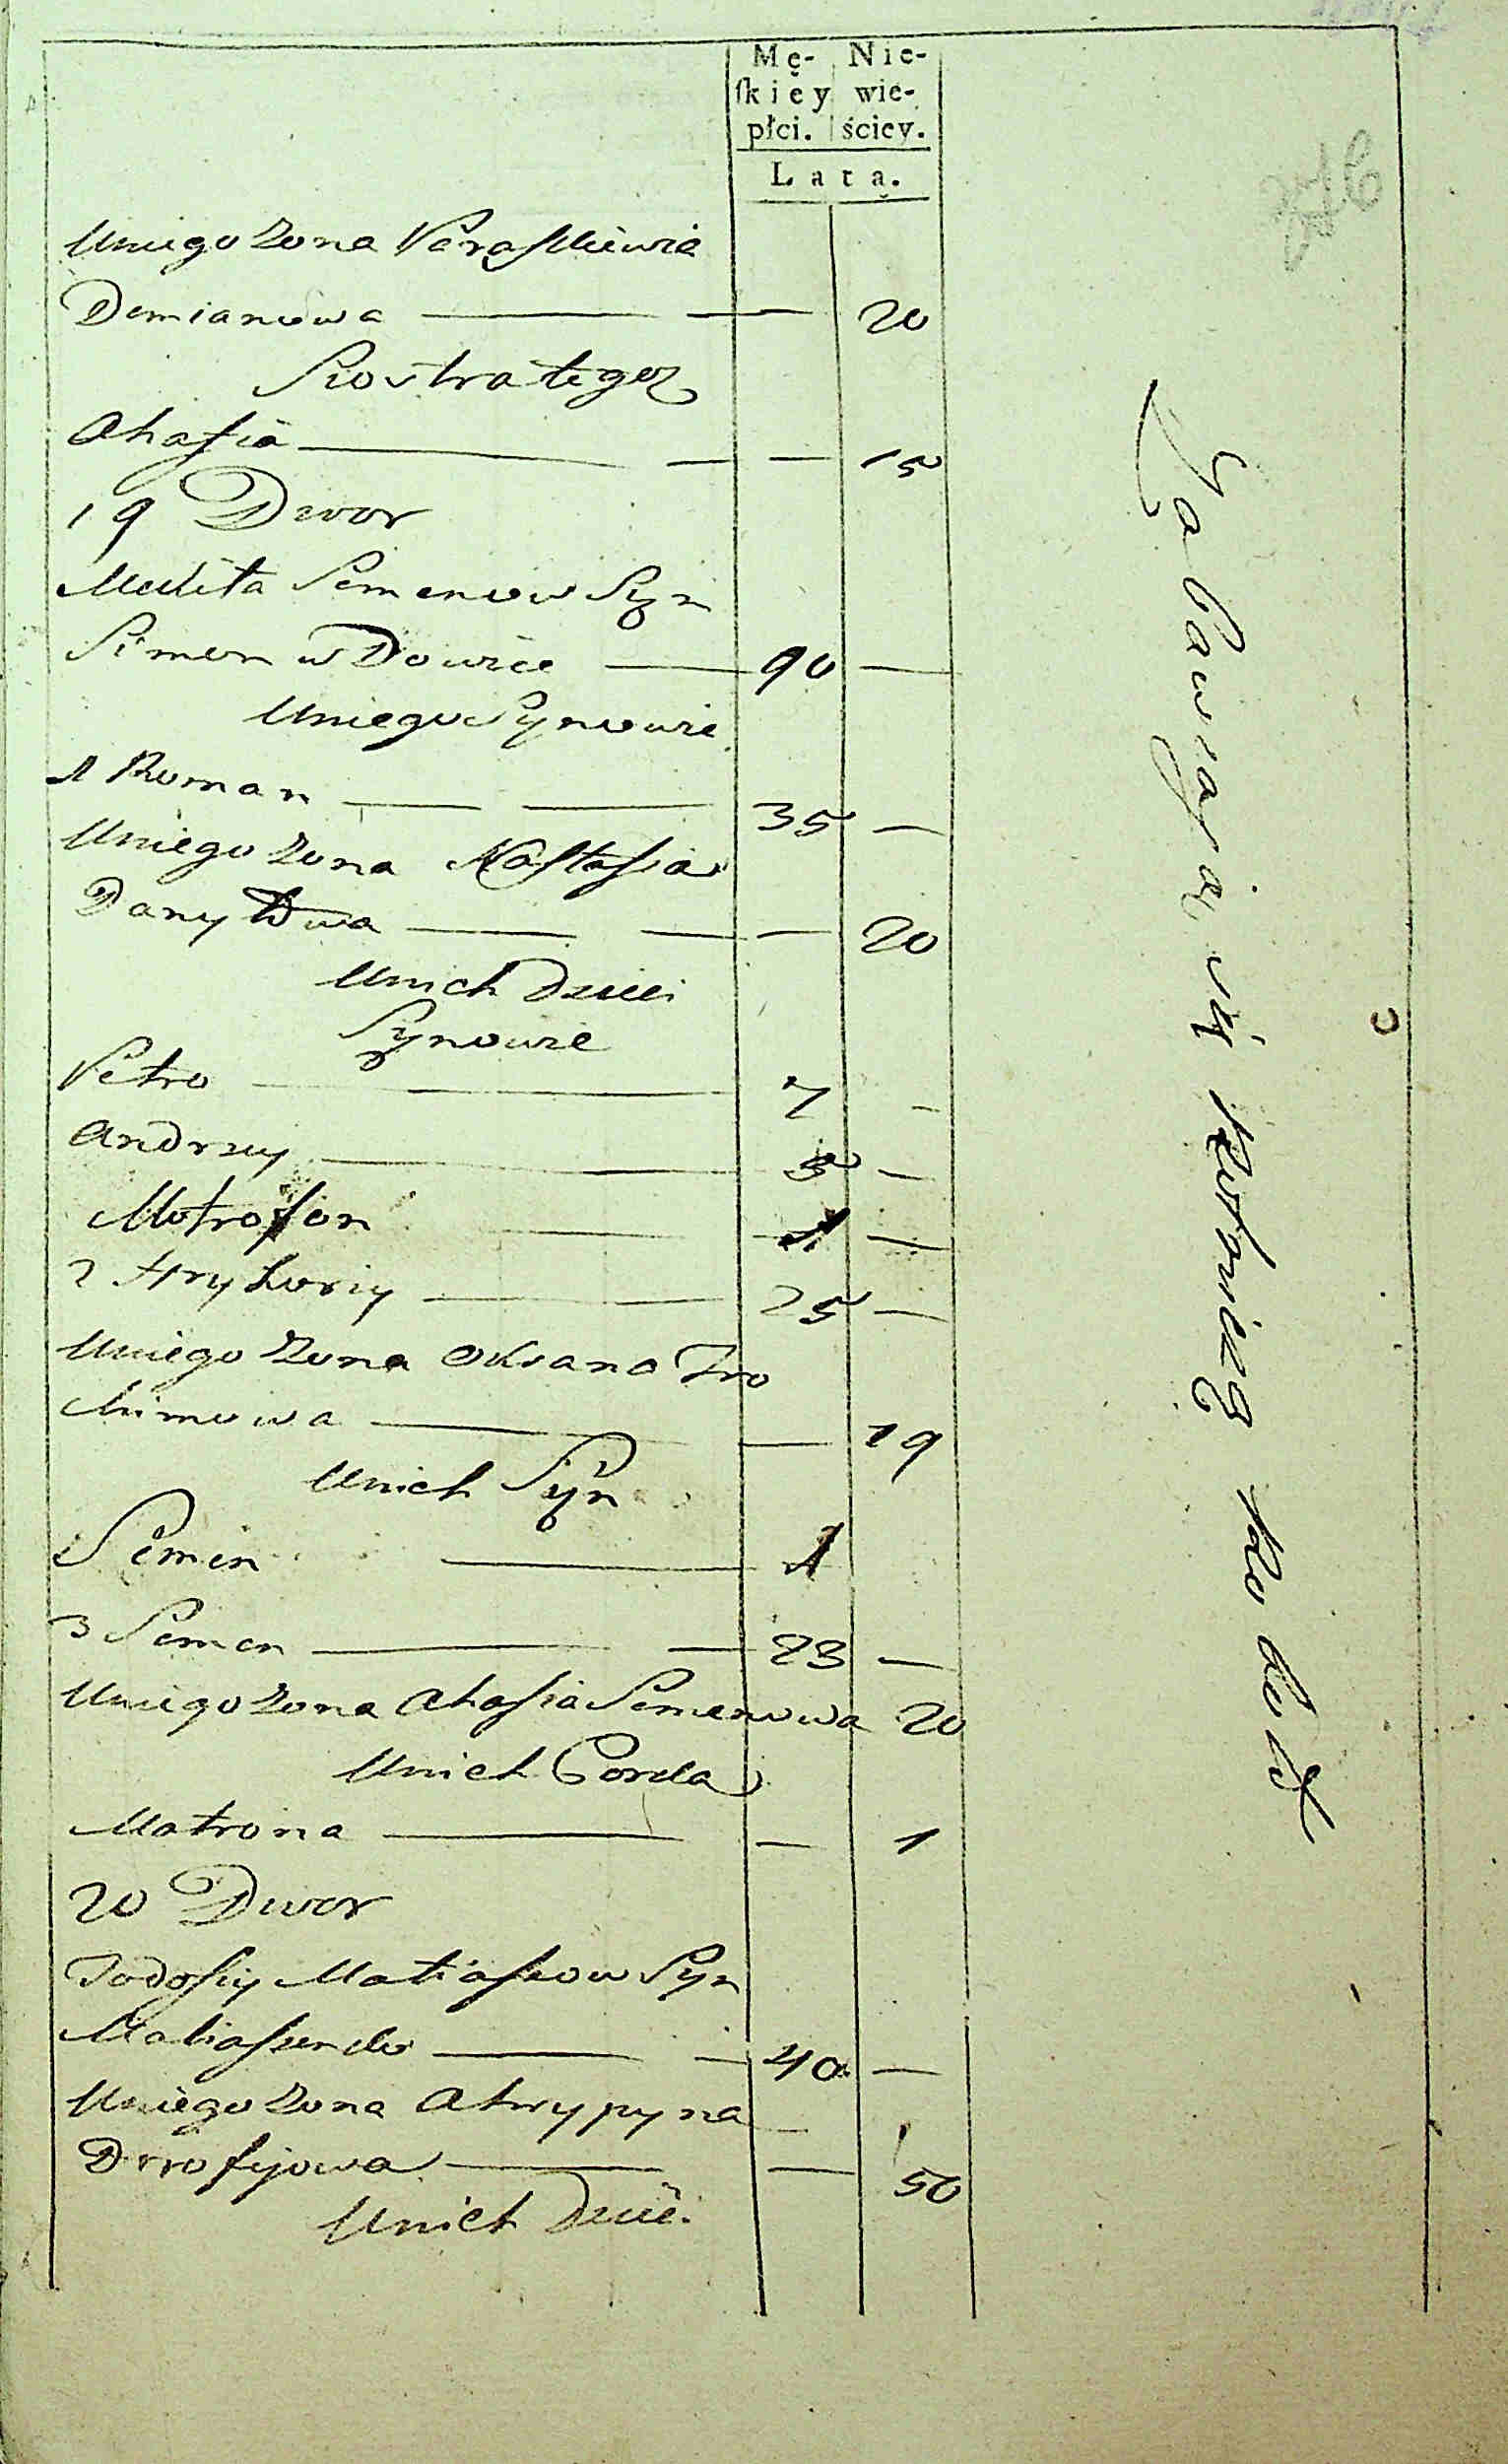 Mę- Nie-
ſkiey wie-
płci. ściey.
Lata.
Uniego Zona Paraskiewia
Demianowa — — 20
Siostra tegoz
Ahafia — — — 15
19 Dwor
Mikita Semenow Syn
Simon w Dowiec — 90 —
Uniego Synowie
1 Roman — — 35 —
Uniego Zona Nastasia
Danyłowa — — — 20
Unich Dzieci
Synowie
Petro — — 7 —
Andrzey — — 3 —
Motrofon — 1 —
2 Hryhoriy — — 25 —
Uniego Zona Oksana Tro
chimowa — — 19
Unich Syn
Semen — 1
3 Semen — — 23 —
Uniego Zona Ahafia Semenowa 20
Unich Corka
Matrona — — 1
20 Dwor
Todosiy Matiaszow Syn
Matiaszenko — — 40 —
Uniego Zona Ahrypyna —
Dorofijowa — — 50
Unich Dzieci
Zabawiaią się Rolnictwem